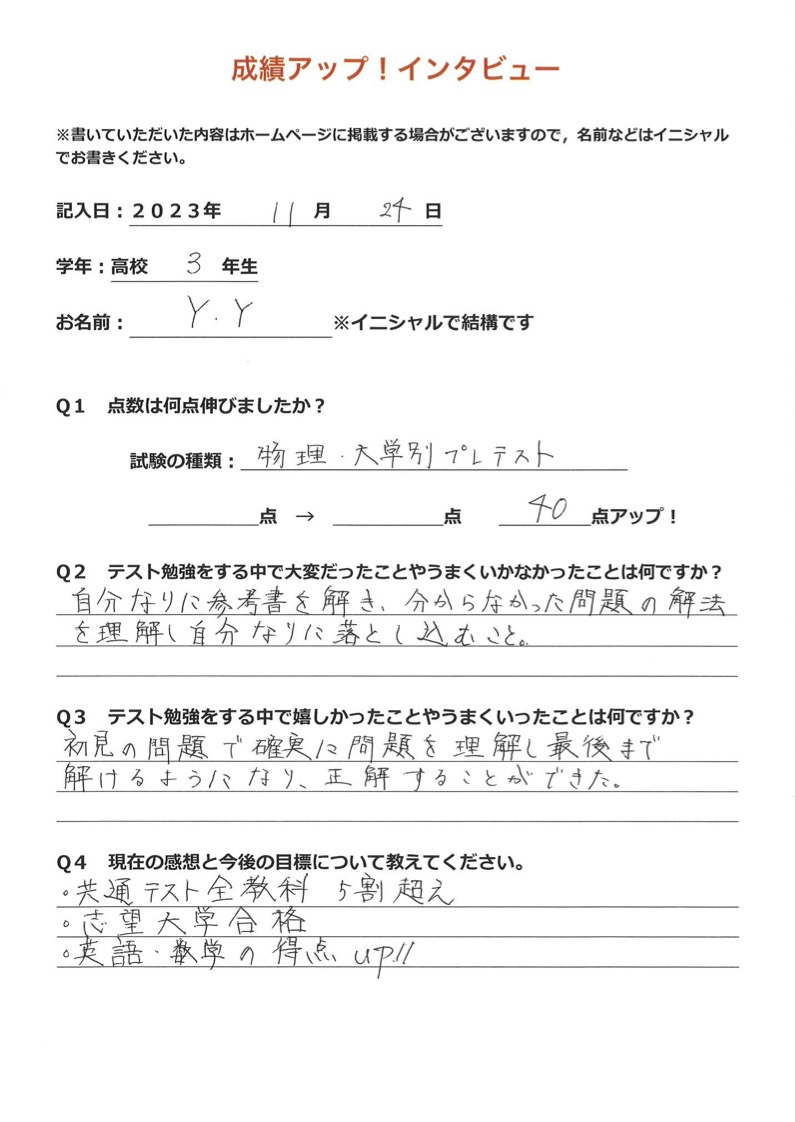 成績アップ！インタビュー
※書いていただいた内容はホームページに掲載する場合がございますので，名前などはイニシャル
でお書きください。
記入日：２０２３年 11 月 24 日
学年：高校 3 年生
お名前： Y.Y ※イニシャルで結構です
Ｑ１ 点数は何点伸びましたか？
試験の種類： 物理・大学別プレテスト
点 → 点 40 点アップ！
Ｑ２ テスト勉強をする中で大変だったことやうまくいかなかったことは何ですか？
自分なりに参考書を解き、分からなかった問題の解法
を理解し自分なりに落とし込むこと。
Ｑ３ テスト勉強をする中で嬉しかったことやうまくいったことは何ですか？
初見の問題で確実に問題を理解し最後まで
解けるようになり、正解することができた。
Ｑ４ 現在の感想と今後の目標について教えてください。
・共通テスト全教科 5割超え
・志望大学合格
・英語・数学の得点up!!